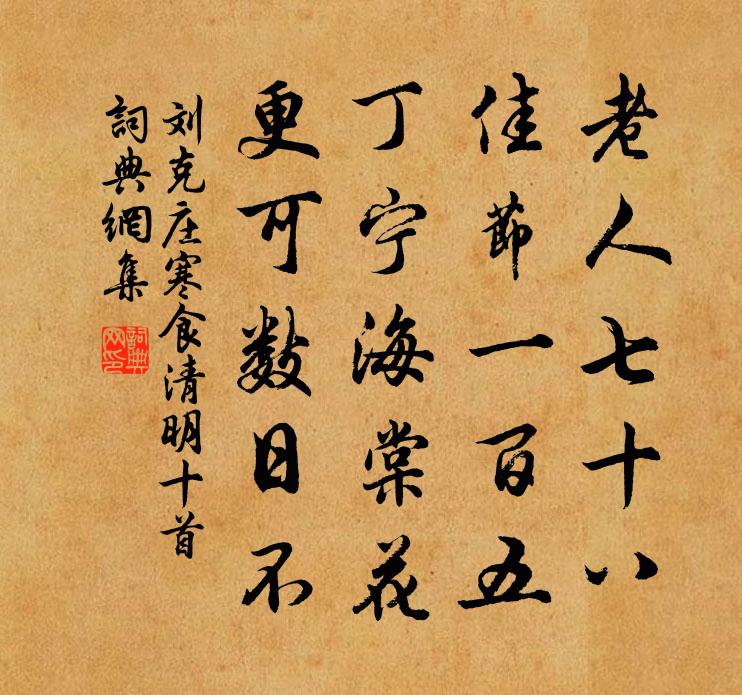 老人七十八
佳節一百五
丁宁海棠花
更可数日不
刘克庄寒食清明十首
詞典網集
詞典网印